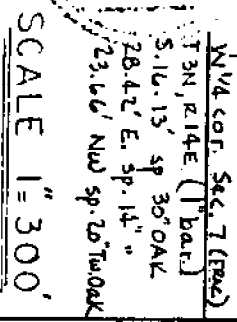 W 1/4 cor. Sec. 7 (FRAC)
T3N, R14E (1" bar.)
S. 16.13' sp 30" OAK
28.42' E. sp. 14" "
23.66' NW sp. 20" Tw.Oak
SCALE 1"= 300'